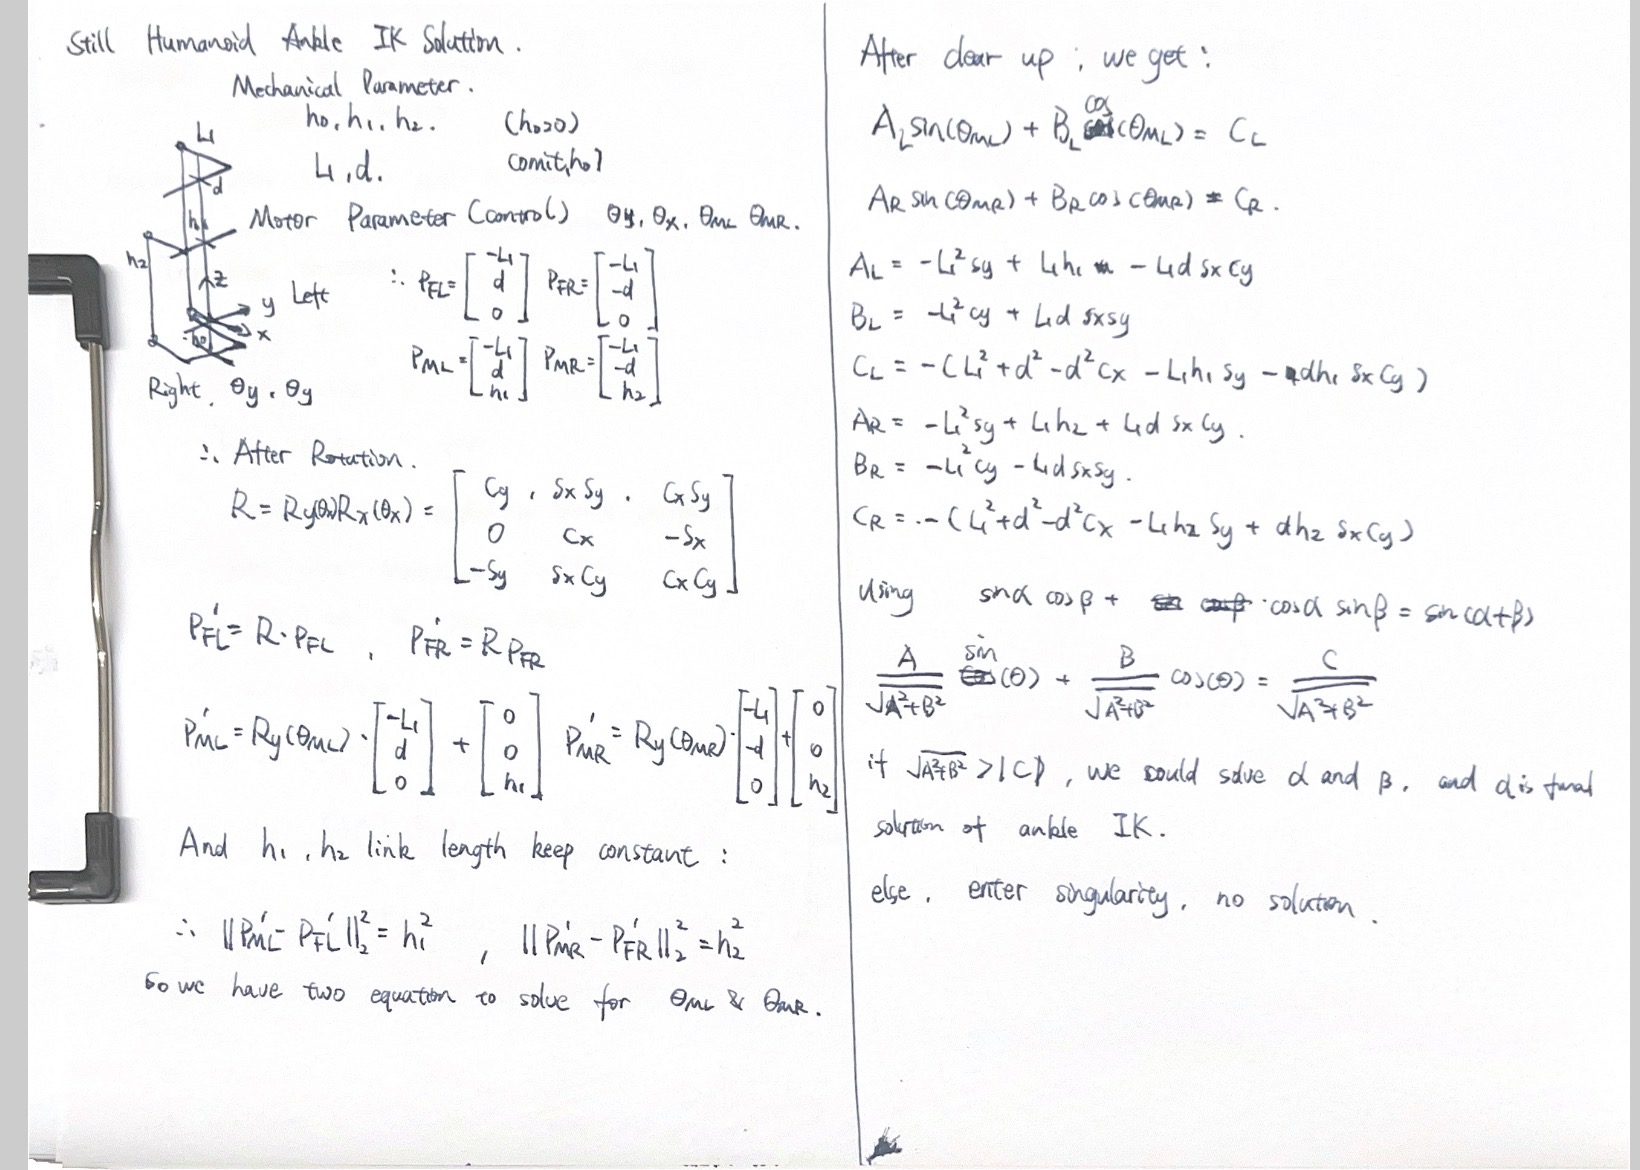 Still Humanoid Ankle IK Solution.
Mechanical Parameter.
h0, h1, h2. (h0≥0)
L1, d. (omit, h0)
Motor Parameter (control) θy, θx, θML θMR.
L1
d
h1
h2
z
y Left
x
h0
Right. θy, θy
∴ PFL = [-L1 d 0] PFR = [-L1 -d 0]
PML = [-L1 d h1] PMR = [-L1 -d h2]
∴ After Rotation.
R = Ry(θy)Rx(θx) = [Cy, SxSy, CxSy
0 Cx -Sx
-Sy SxCy CxCy]
P'FL = R·PFL, P'FR = R PFR
P'ML = Ry(θML)·[-L1 d 0] + [0 0 h1] P'MR = Ry(θMR)·[-L1 -d 0] + [0 0 h2]
And h1, h2 link length keep constant:
∴ ||P'ML - P'FL||₂² = h1², ||P'MR - P'FR||₂² = h2²
So we have two equation to solve for θML & θMR.
After clear up, we get:
AL sin(θML) + BL cos(θML) = CL
AR sin(θMR) + BR cos(θMR) = CR.
AL = -L1² sy + L1h1 - L1d sx cy
BL = -L1² cy + L1d sxsy
CL = -(L1² + d² - d²cx - L1h1 sy - dh1 sx cy)
AR = -L1² sy + L1h2 + L1d sx cy.
BR = -L1² cy - L1d sxsy.
CR = -(L1² + d² - d²cx - L1h2 sy + dh2 sx cy)
Using sinα cosβ + cosα sinβ = sin(α+β)
A/√(A²+B²) sin(θ) + B/√(A²+B²) cos(θ) = C/√(A²+B²)
if √(A²+B²) > |C|, we could solve α and β, and α is final
solution of ankle IK.
else, enter singularity, no solution.